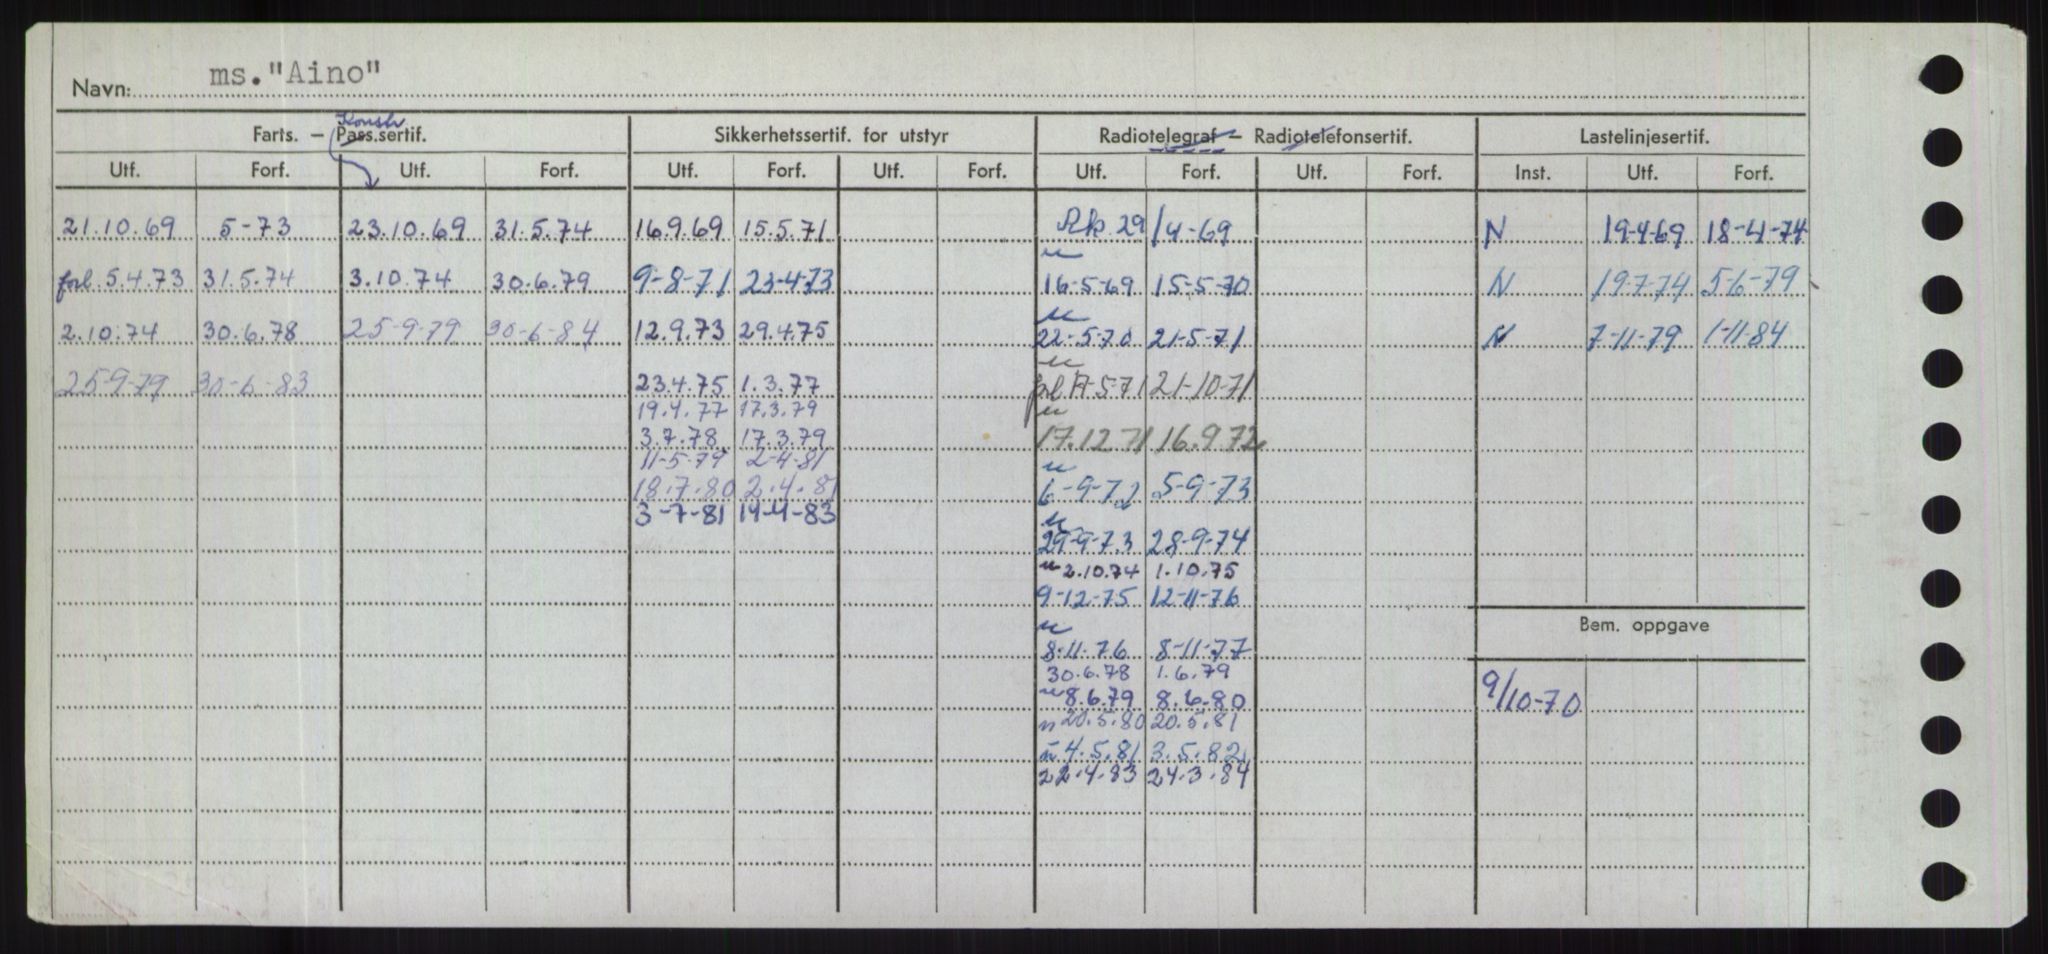 Navn: ms. "Aino"
Konstr
Farts. — Pass.sertif. Sikkerhetssertif. for utstyr Radiotelegraf — Radiotelefonsertif. Lastelinjesertif.
Utf. Forf. Utf. Forf. Utf. Forf. Utf. Forf. Utf. Forf. Utf. Forf. Inst. Utf. Forf.
21.10.69 5-73 23.10.69 31.5.74 16.9.69 15.5.71 Rk 29/4-69 N 19-4-69 18-4-74
forl. 5.4.73 31.5.74 3.10.74 30.6.79 9-8-71 23-4-73 16-5-69 15-5-70 N 19-7-74 5-6-79
2.10.74 30.6.78 25-9-79 30-6-84 12.9.73 29.4.75 22-5-70 21-5-71 N 7-11-79 1-11-84
25-9-79 30-6-83 23.4.75 1.3.77 17-5-71 21-10-71
19.4.77 17.3.79
3.7.78 17.3.79 17.12 71 16.9.72
11-5-79 2-4-81
18.7.80 2.4.81 6-9-72 5-9-73
3-7-81 19-4-83
29-9-73 28-9-74
2.10.74 1.10.75
9-12-75 12-11-76
Bem. oppgave
8.11.76 8-11-77
30.6.78 1.6.79
9/10-70
8.6.79 8.6.80
20.5.80 20.5.81
4.5.81 3.5.82
22.4.83 24.3.84